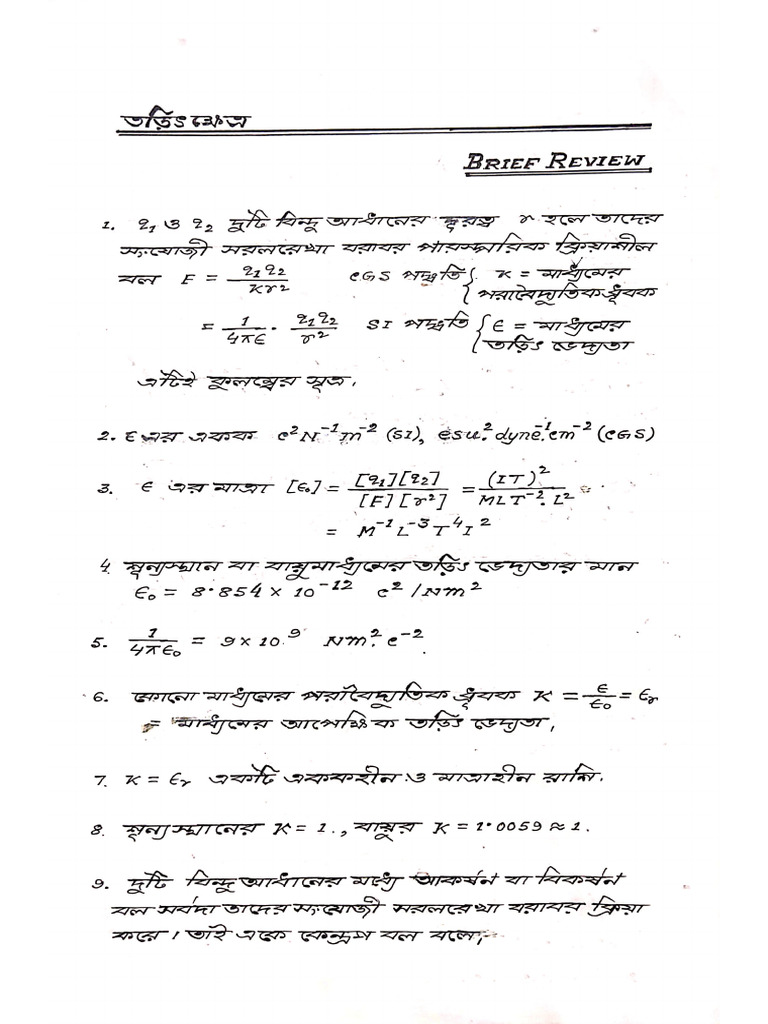 তড়িৎ ক্ষেত্র
BRIEF REVIEW
1. q₁ ও q₂ দুটি বিন্দু আধানের দূরত্ব r হলে তাদের
সংযোজী সরলরেখা বরাবর পারস্পারিক ক্রিয়াশীল
বল F = q₁q₂/Kr² CGS পদ্ধতি { K = মাধ্যমের পরাবৈদ্যুতিক ধ্রুবক
= 1/4πϵ · q₁q₂/r² SI পদ্ধতি { ϵ = মাধ্যমের তড়িৎ ভেদ্যতা
এটিই কুলম্বের সূত্র।
2. ϵ এর একক C²N⁻¹m⁻² (SI), esu².dyne⁻¹.cm⁻² (CGS)
3. ϵ এর মাত্রা [ϵ₀] = [q₁][q₂]/[F][r²] = (IT)²/MLT⁻².L²
= M⁻¹L⁻³T⁴I²
4. শূন্যস্থান বা বায়ুমাধ্যমের তড়িৎ ভেদ্যতার মান
ϵ₀ = 8.854 × 10⁻¹² C²/Nm²
5. 1/4πϵ₀ = 9 × 10⁹ Nm².C⁻².
6. কোনো মাধ্যমের পরাবৈদ্যুতিক ধ্রুবক K = ϵ/ϵ₀ = ϵᵣ
= মাধ্যমের আপেক্ষিক তড়িৎ ভেদ্যতা।
7. K = ϵᵣ একটি এককহীন ও মাত্রাহীন রাশি.
8. শূন্যস্থানের K = 1., বায়ুর K = 1.0059 ≈ 1.
9. দুটি বিন্দু আধানের মধ্যে আকর্ষন বা বিকর্ষন
বল সর্বদা তাদের সংযোজী সরলরেখা বরাবর ক্রিয়া
করে। তাই একে কেন্দ্রগ বল বলে।